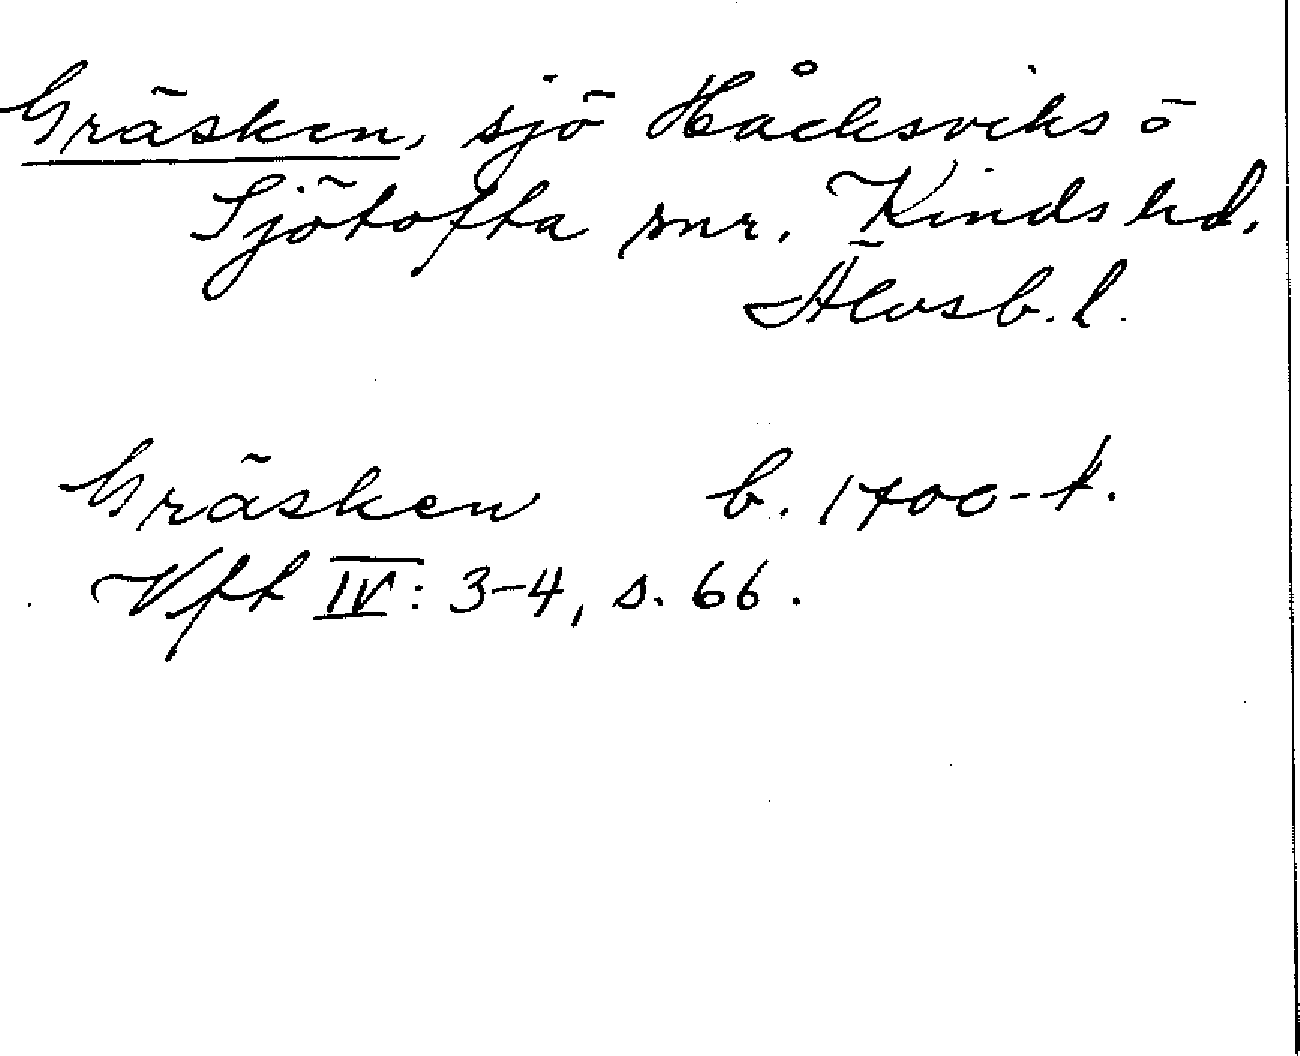 Gräsken, sjö Håcksviks o
Sjötofta snr. Kinds hd.
Älvsb. l.
Gräsken b. 1700-t.
Vft IV: 3-4, s. 66.